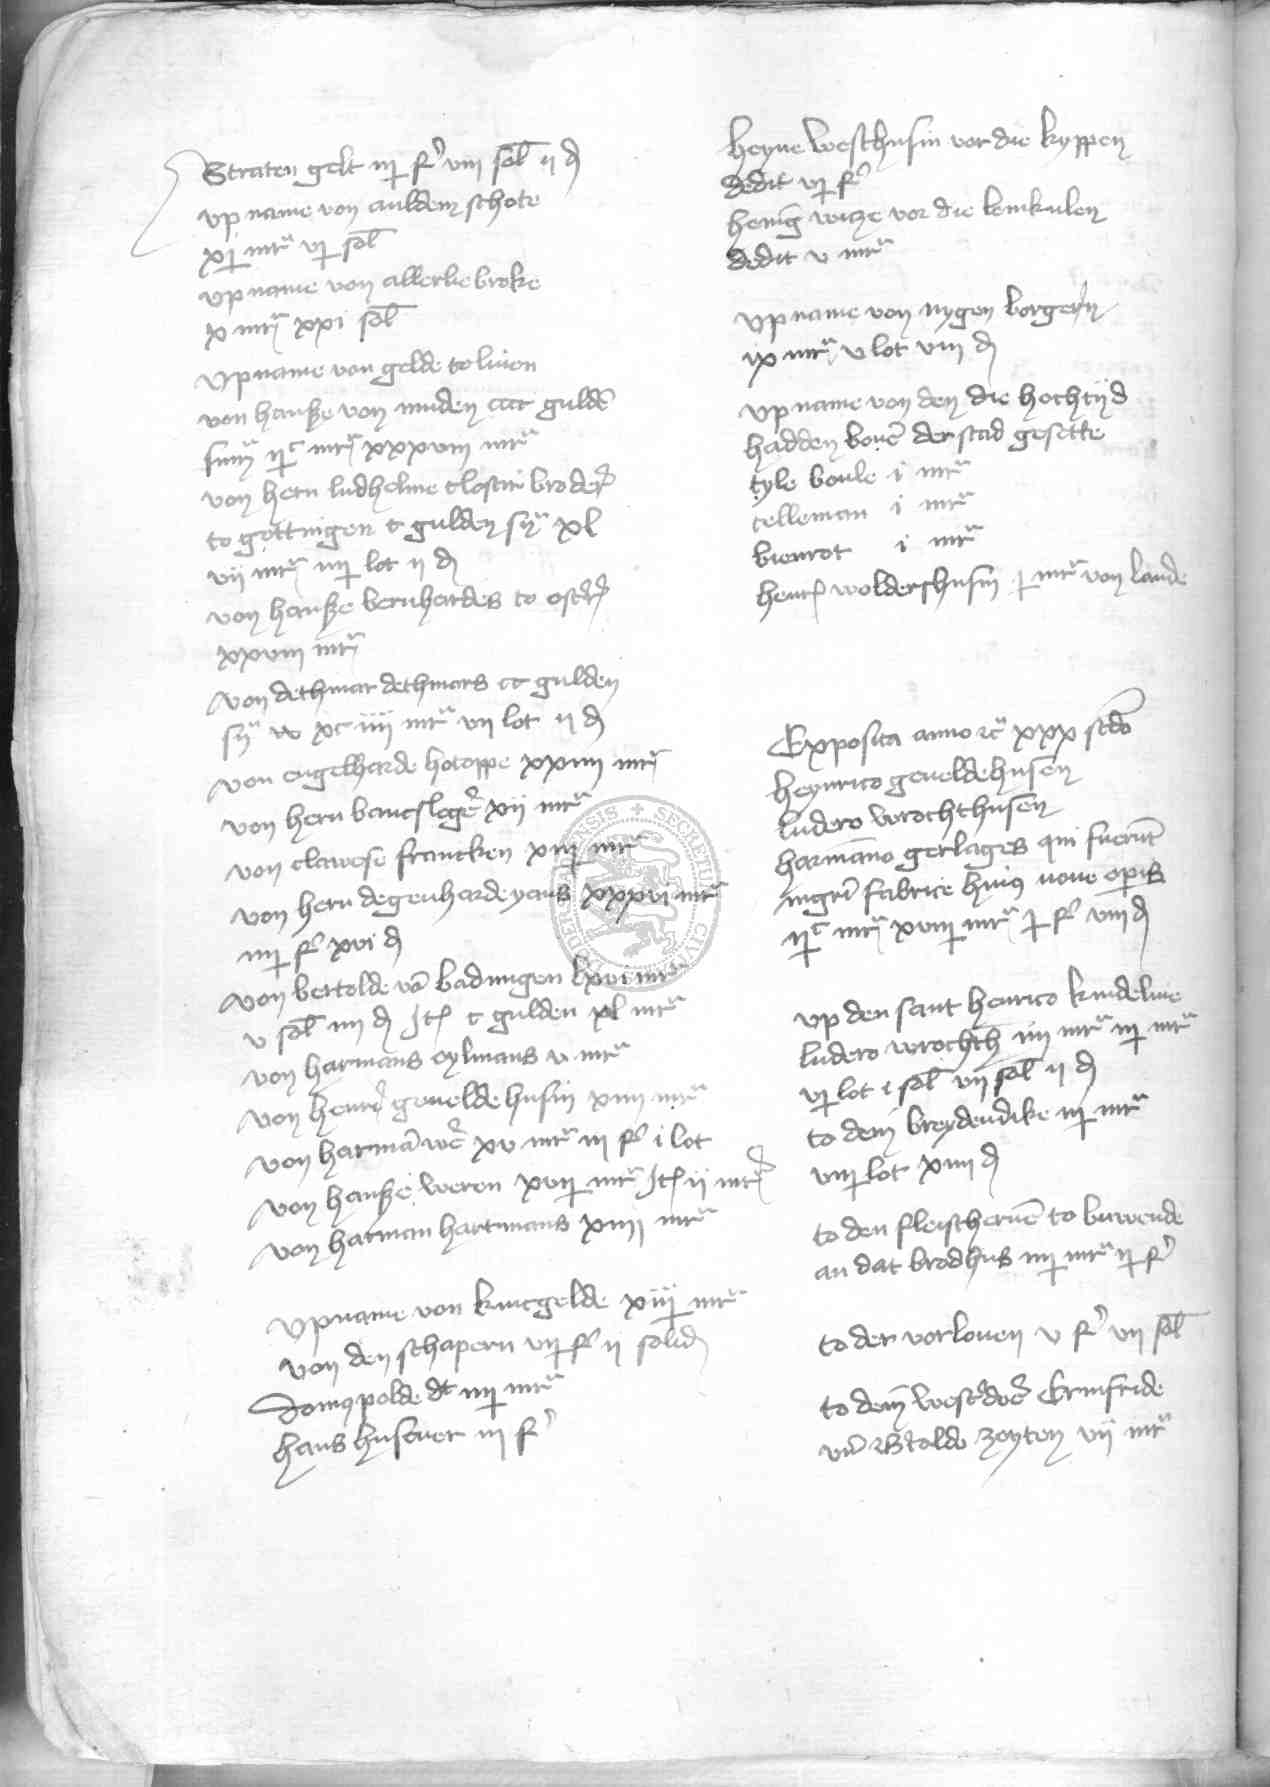 Straten gelt iij f viij sol ij d
Upname von auldem schote
xj mr vj sol
Upname von allerlie broke
x mr xxi sol
Upname von gelde to liuen
von hansze von munden cccc gulden
sum ijc mr xxxviij mr
von hern ludhelme closter broder
to gottingen c gulden sum xl
vij mr iiij lot ij d
von hansze bernhardes to oster
xxviij mr
von dethmar dethmars cc gulden
sum xc iiij mr vij lot ij d
von engelharde hotoppe xxiiij mr
von hern banslager xij mr
von clawese francken xiij mr
von hern degenharde yans xxxvi mr
iiij f xvi d
von bertolde van badungen lxvi mr
v sol iiij d Item c gulden xl mr
von harmans eylmans v mr
von henrich geueldehusin xiiij mr
von harman xv mr iij f i lot
von hansze weren xvij mr Item ij mr
von harman hartmans xiij mr
Upname von kuncgelde xiij mr
von den schapern vij f ij solid
polde dt iiij mr
hans husener iij f
heyne westhusin vor die kyppen
dedit vj f
hennig witze vor die lemkulen
dedit v mr
Upname von nygen borgern
ix mr v lot viij d
Upname von den die hochtijd
hadden boven der stad gesette
tyle boule i mr
telleman i mr
bienrot i mr
henrich woldershusin j mr von lande
Exposita anno xxx scdo
heynrico geueldehusen
ludero worochthusen
harmano gerlages qui fuerunt
mgri fabrice huius noue operis
ijc mr xviij mr j f viij d
up den sant henrico kindeline
ludero wrochth iiij mr iij mr
vj lot i sol vij sol ij d
to dem breydendike iij mr
viij lot xiiij d
to den fleischeruen to buwende
an dat brodhus iiij mr ij f
to der vorlouen v f vij sol
to dem westerdor Ermfride
un bertoldo zeyten vij mr